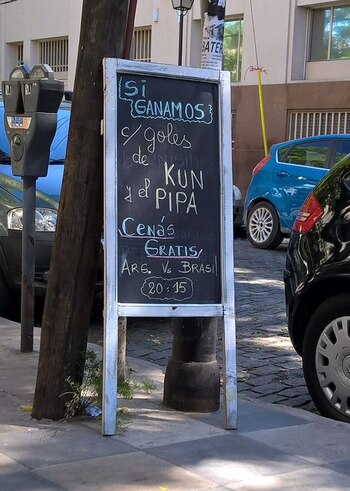 Si
GANAMOS
c/ goles
de
KUN
y el PIPA
Cenás
Gratis/
Arg. Vs Brasil
20:15